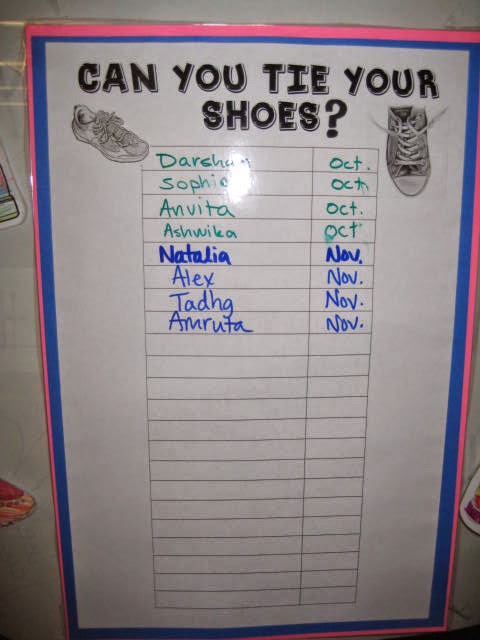 CAN YOU TIE YOUR
SHOES?
Darshan Oct.
Sophia Oct.
Anvita Oct.
Ashwika Oct
Natalia Nov.
Alex Nov.
Tadhg Nov.
Amruta Nov.